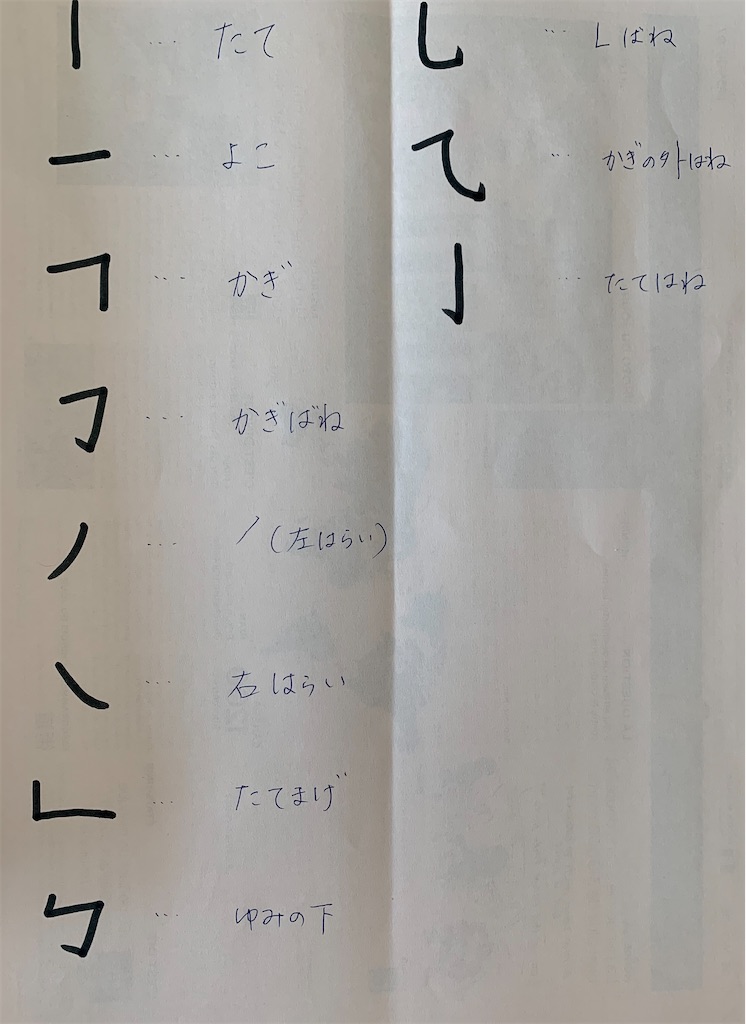 ｜ … たて
一 … よこ
㇕ … かぎ
㇆ … かぎばね
㇒ … ノ(左はらい)
㇏ … 右はらい
㇗ … たてまげ
㇉ … ゆみの下
㇟ … Lばね
㇈ … かぎの外はね
亅 … たてはね